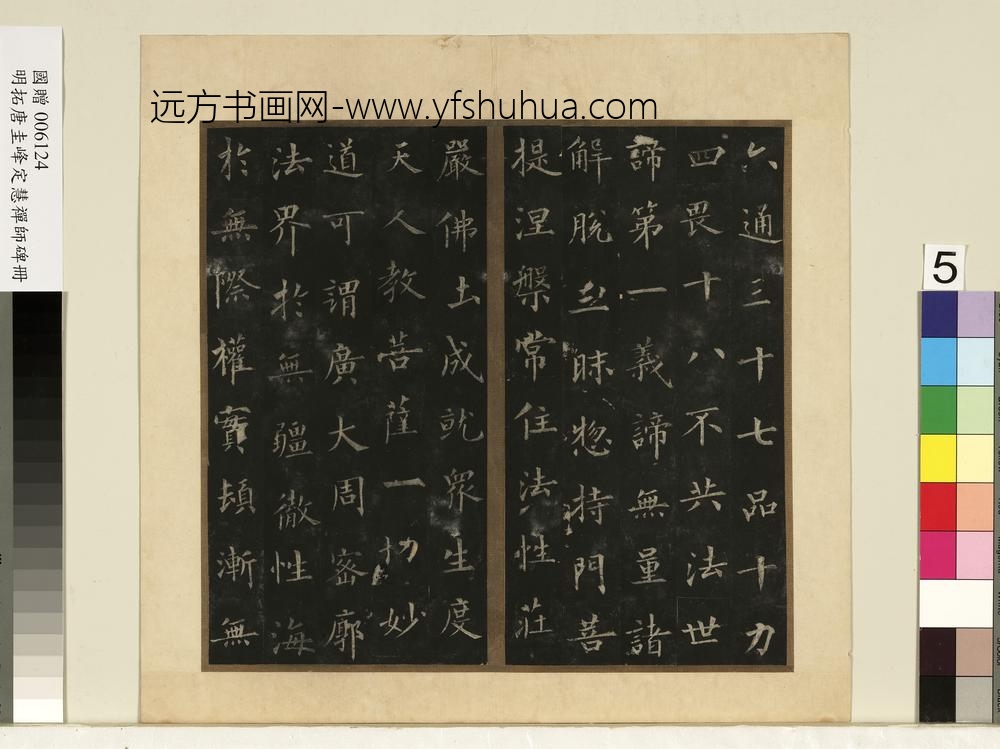 國贈 006124
明拓唐圭峰定慧禪師碑冊
远方书画网-www.yfshuhua.com
5
六通三十七品十力
四畏十八不共法世
諦第一義諦無量諸
解脫三昧惣持門菩
提涅槃常住法性莊
嚴佛土成就眾生度
天人教菩薩一切妙
道可謂廣大周密廓
法界於無疆徹性海
於無際權實頓漸無